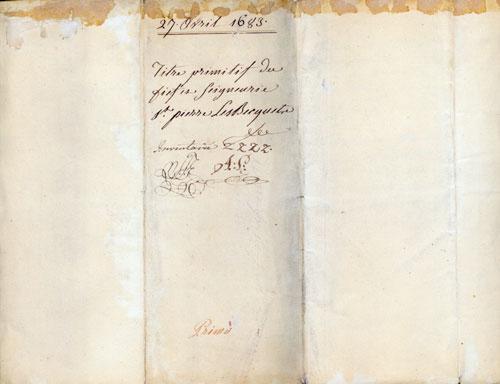 27. Avril 1683.
Titre primitif du
fief et Seigneurie
St. pierre Les Becquets
Inventaire ZZZZ.
A. P.
Primo